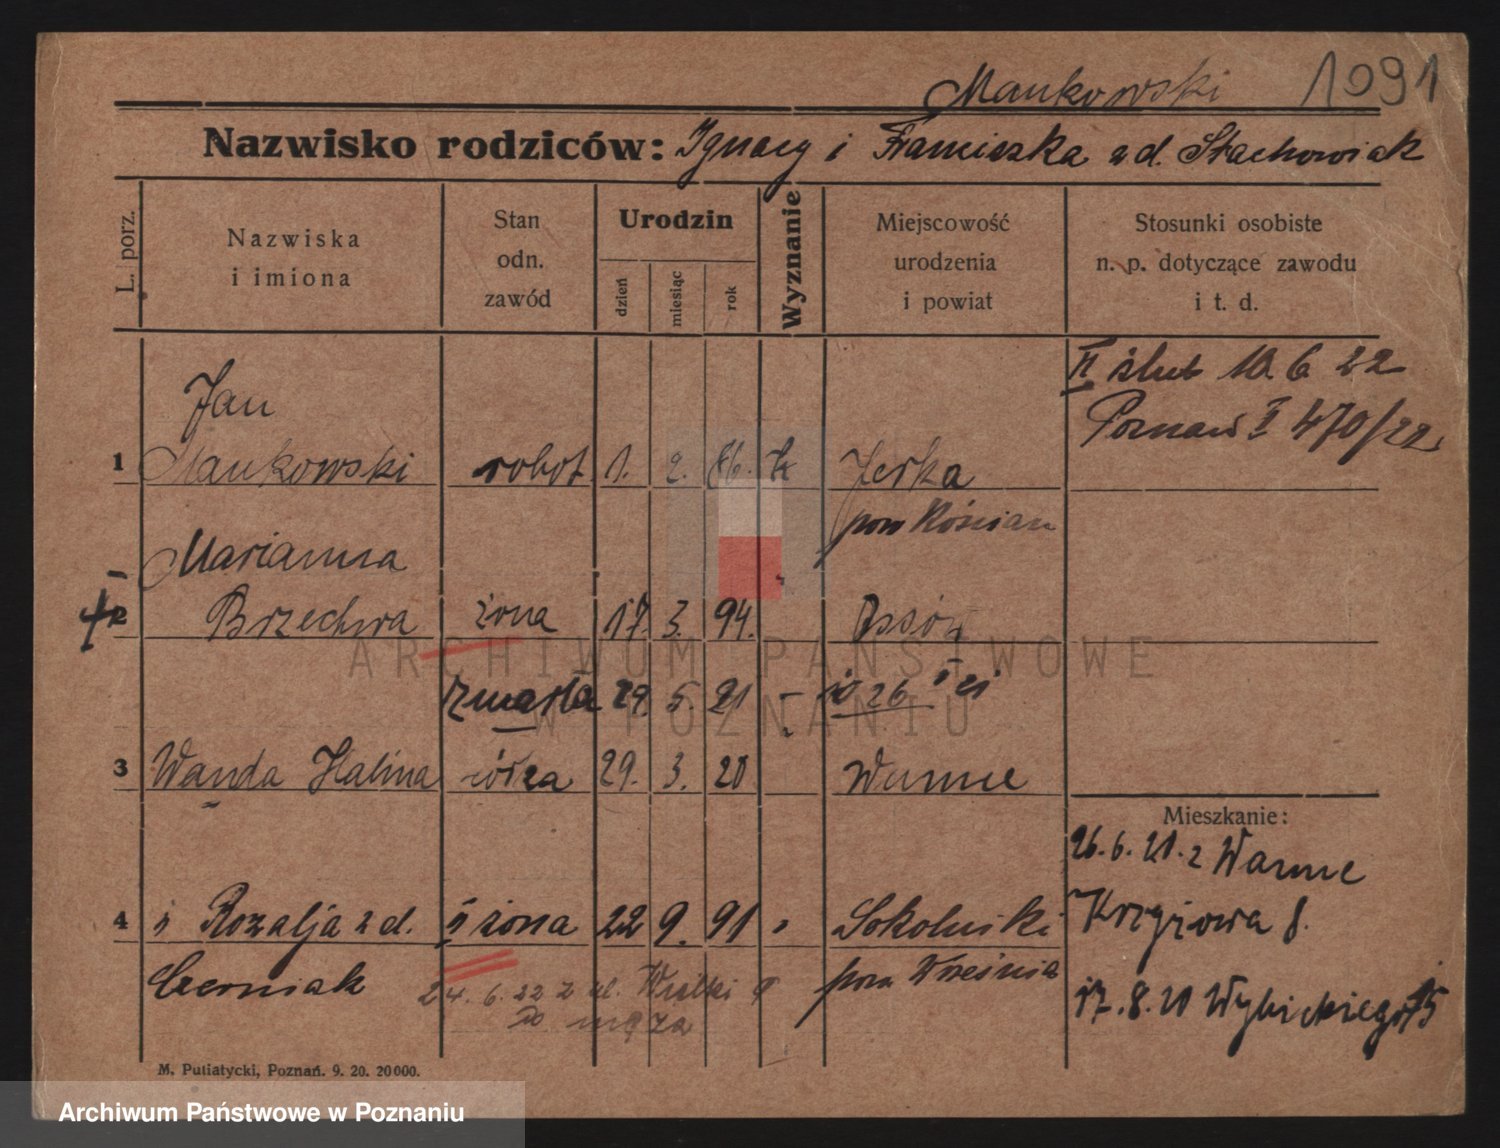 Mankowski 1091
Nazwisko rodziców: Ignacy i Franciszka z d. Stachowiak
L. porz.
Nazwiska
i imiona
Stan
odn.
zawód
Urodzin
dzień
miesiąc
rok
Wyznanie
Miejscowość
urodzenia
i powiat
Stosunki osobiste
n. p. dotyczące zawodu
i t. d.
II ślub 10. 6 22
Poznań 470/22
Jan
1 Mankowski robot 1. 2. 86. k Jerka
pow Kościan
Marianna
2 Brzechwa żona 17. 3. 94.
zmarła 29. 5. 21
3 Wanda Halina córka 29. 3. 20 Wanne
Mieszkanie:
26. 6. 21. z Wanne
4 Rozalja z d. II żona 22 9. 91 Sokolniki
Czerniak pow Września
Krzyżowa 8.
24. 6. 22 z ul.
do męża
17. 8. 21 Wybickiego 15
M. Putiatycki, Poznań. 9. 20. 20000.
ARCHIWUM PAŃSTWOWE
W POZNANIU
Archiwum Państwowe w Poznaniu